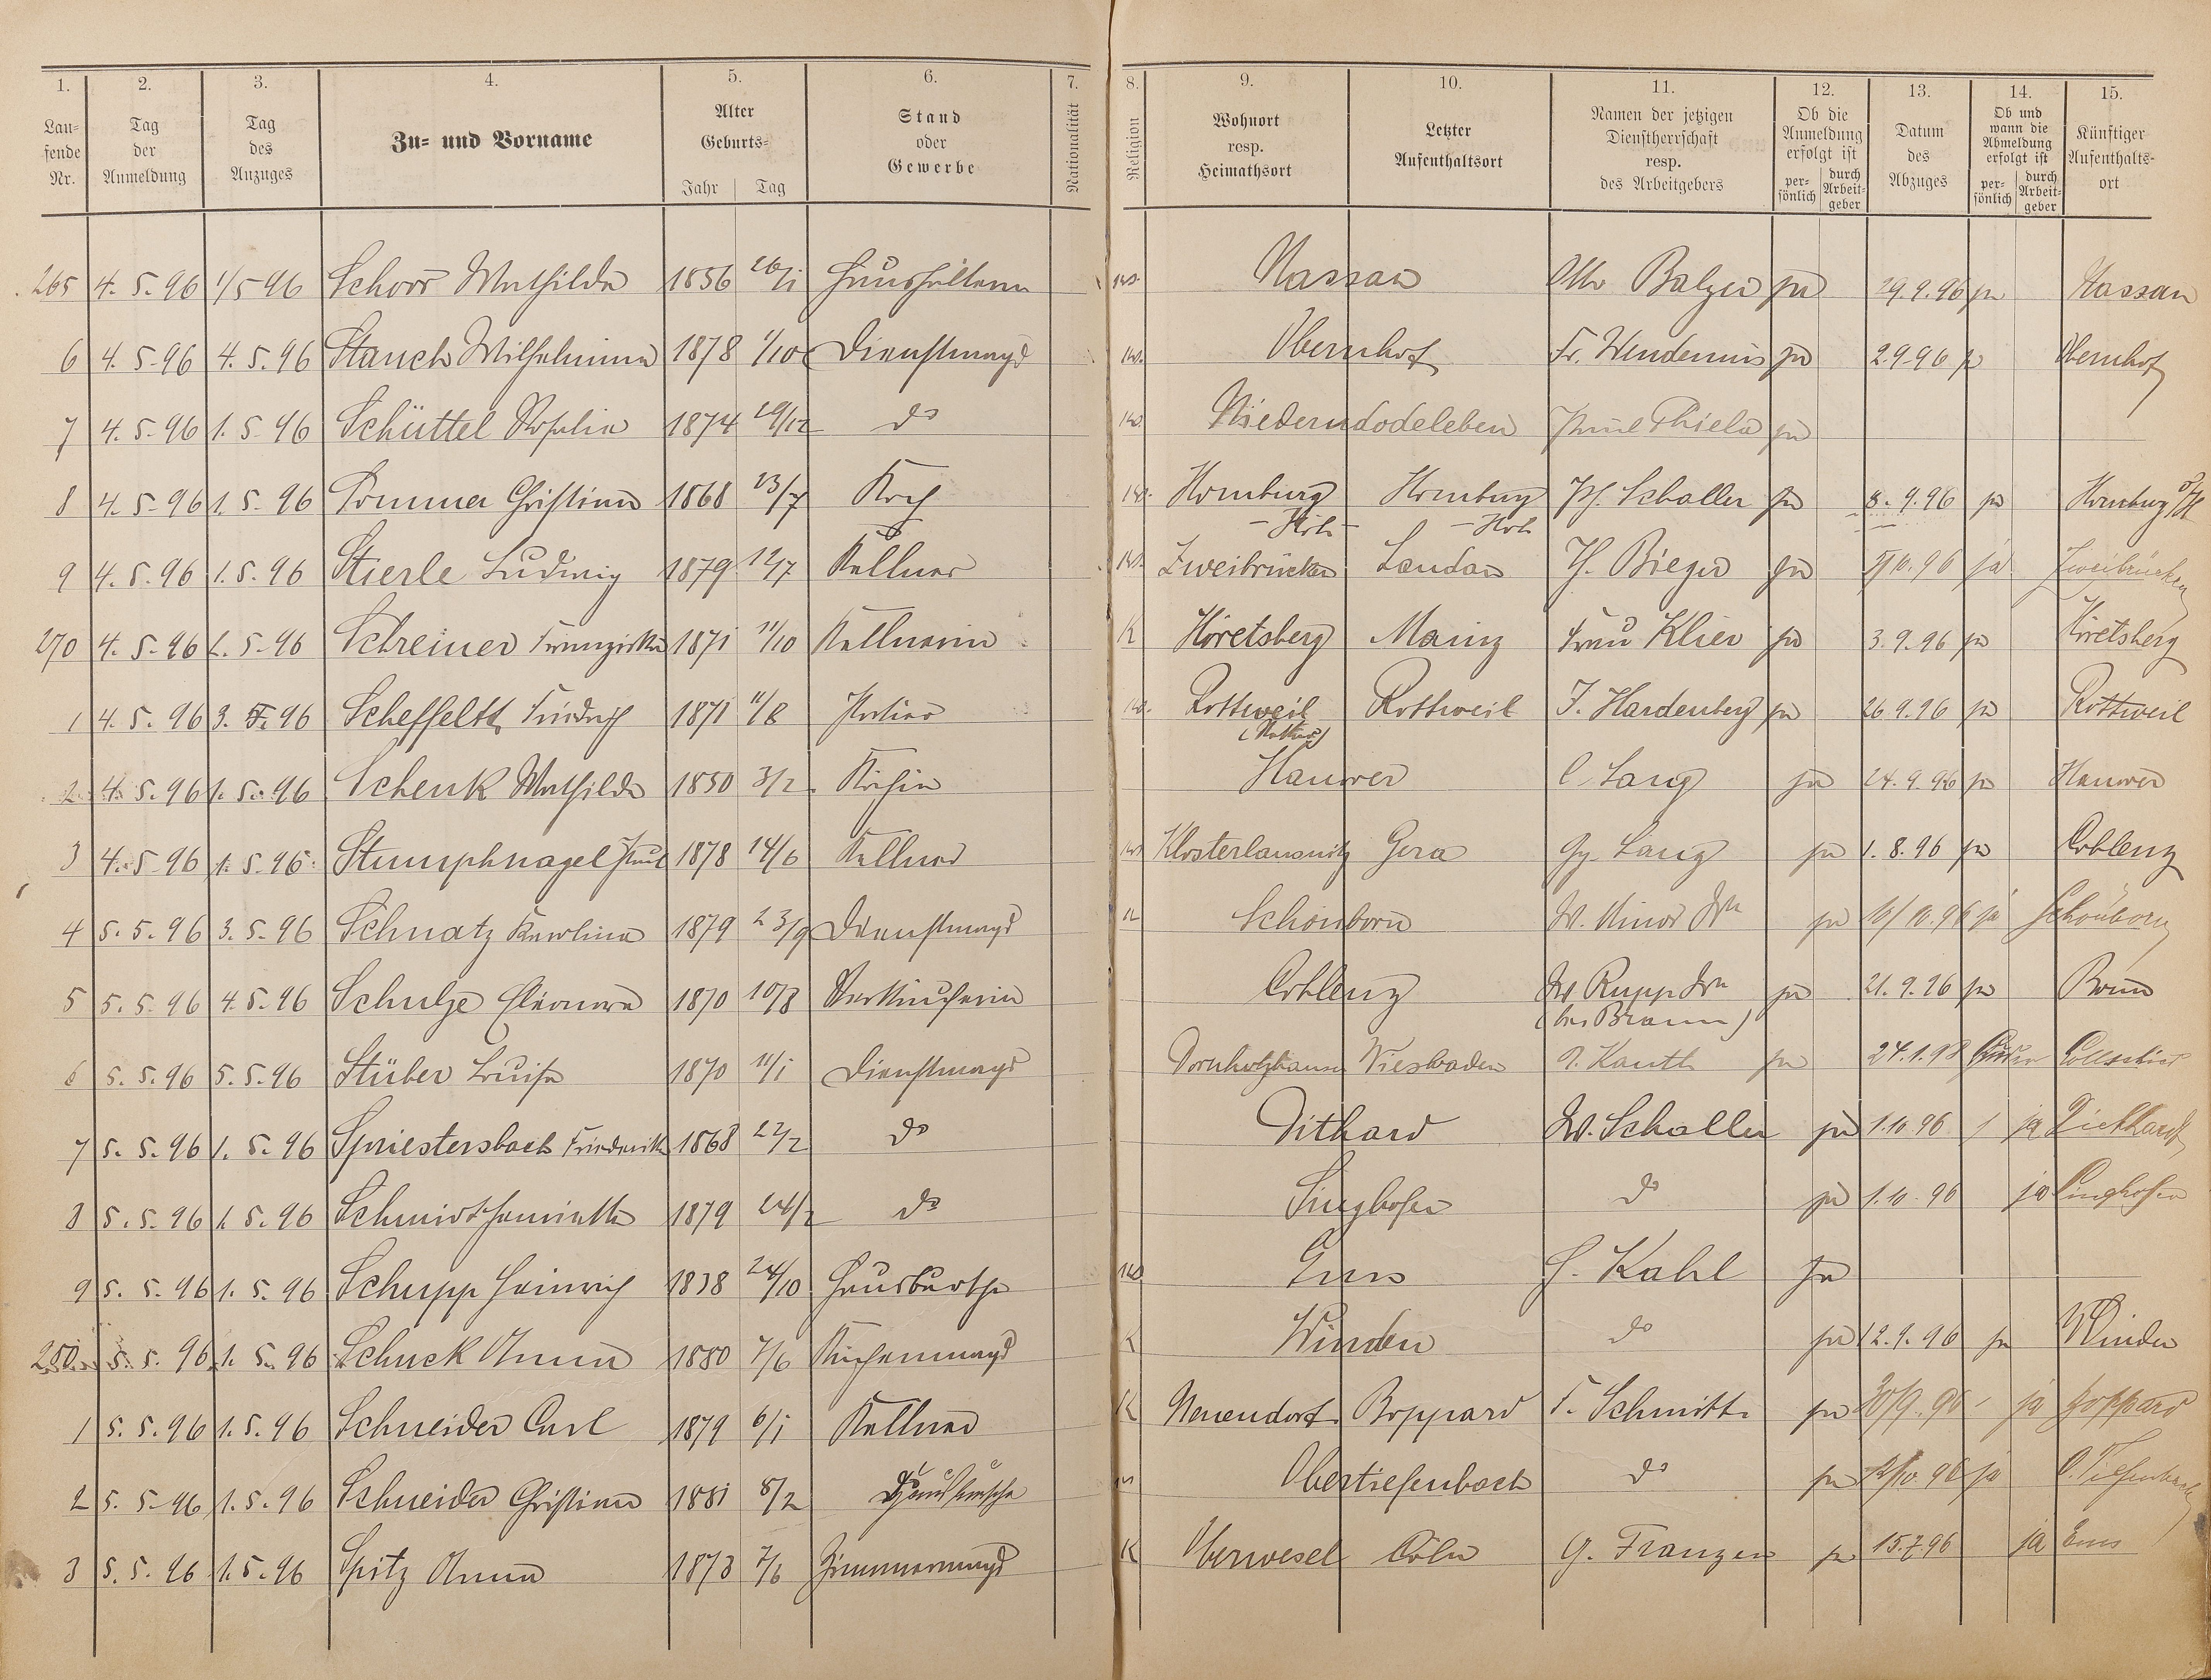 1. 2. 3. 4. 5. 6. 7. 8. 9. 10. 11. 12. 13. 14. 15.
Laufende Nr. | Tag der Anmeldung | Tag des Anzuges | Zu- und Vorname | Alter Geburts- Jahr Tag | Stand oder Gewerbe | Nationalität | Religion | Wohnort resp. Heimathsort | Letzter Aufenthaltsort | Namen der jetzigen Dienstherrschaft resp. des Arbeitgebers | Ob die Anmeldung erfolgt ist persönlich durch Arbeitgeber | Datum des Abzuges | Ob und wann die Abmeldung erfolgt ist persönlich durch Arbeitgeber | Künftiger Aufenthaltsort
265 4.5.96 1/5 96 Schorr Mathilde 1856 26/1 Haushälterin Nassau Otto Balzer ja 29.9.96 ja Nassau
6 4.5.96 4.5.96 Stauch Wilhelmine 1878 1/10 Dienstmagd Obernhof Fr. ja 2.9.96 ja Obernhof
7 4.5.96 1.5.96 Schüttel Rosalie 1874 29/12 do Niederndodeleben Paul Thiele ja
8 4.5.96 1.5.96 Pommer Christian 1868 23/7 Koch Homburg Homburg Ph. Schaller ja 8.9.96 ja Homburg v/H
- Höh - - Höh
9 4.5.96 1.5.96 Stierle Ludwig 1879 12/7 Kellner Zweibrücken Landau H. Bieger ja 5/10.96 ja Zweibrücken
270 4.5.96 1.5.96 Schreiner Franziska 1871 11/10 Kellnerin K Höretsberg Mainz Frau Klier ja 3.9.96 ja Höretsberg
1 4.5.96 3.5.96 Scheffeltt Friedrich 1871 11/8 Portier Rottweil Rottweil J. Hardenberg ja 26.9.96 ja Rottweil
2 4.5.96 1.5.96 Schenk Mathilde 1850 3/2 Köchin Hanover C. Lang ja 24.9.96 ja Hanover
3 4.5.96 1.5.96 Stumpfnagel Paul 1878 14/6 Kellner Klosterlausnitz Gera Gg. Lang ja 1.8.96 ja Coblenz
4 5.5.96 3.5.96 Schnatz Karoline 1879 23/9 Dienstmagd K Schönborn W. Minor Ww ja 10/10.96 ja Schönborn
5 5.5.96 4.5.96 Schulze Eleonore 1870 10/8 Verkäuferin Coblenz W Rupp Ww ja 21.9.96 ja Bonn
(bei Braun)
6 5.5.96 5.5.96 Stüber Luise 1870 11/1 Dienstmagd Dornholzhausen Wiesbaden A. Kauth ja 24.1.98
7 5.5.96 1.5.96 Spriestersbach Friederike 1868 22/2 do Dithard W. Schaller ja 1.10.96 / ja Diethardt
8 5.5.96 1.5.96 Schmidt Henriette 1879 24/2 do Singhofen do ja 1.10.96 ja Singhofen
9 5.5.96 1.5.96 Schupp Heinrich 1838 24/10 Hausbursche Ems H. Kahl ja
280 5.5.96 1.5.96 Schuck Anna 1880 7/6 Küchenmagd K Winden do ja 12.9.96 ja Winden
1 5.5.96 1.5.96 Schneider Carl 1879 6/1 Kellner K Neuendorf Boppard F. Schmitt ja 30/9.96 - ja Boppard
2 5.5.96 1.5.96 Schneider Christian 1881 8/2 Hausbursche Obertiefenbach do ja 2/10.96 ja O.Tiefenbach
3 5.5.96 1.5.96 Spitz Anna 1873 7/6 Zimmermagd K Oberwesel Cöln G. Franzen ja 15.7.96 ja Ems